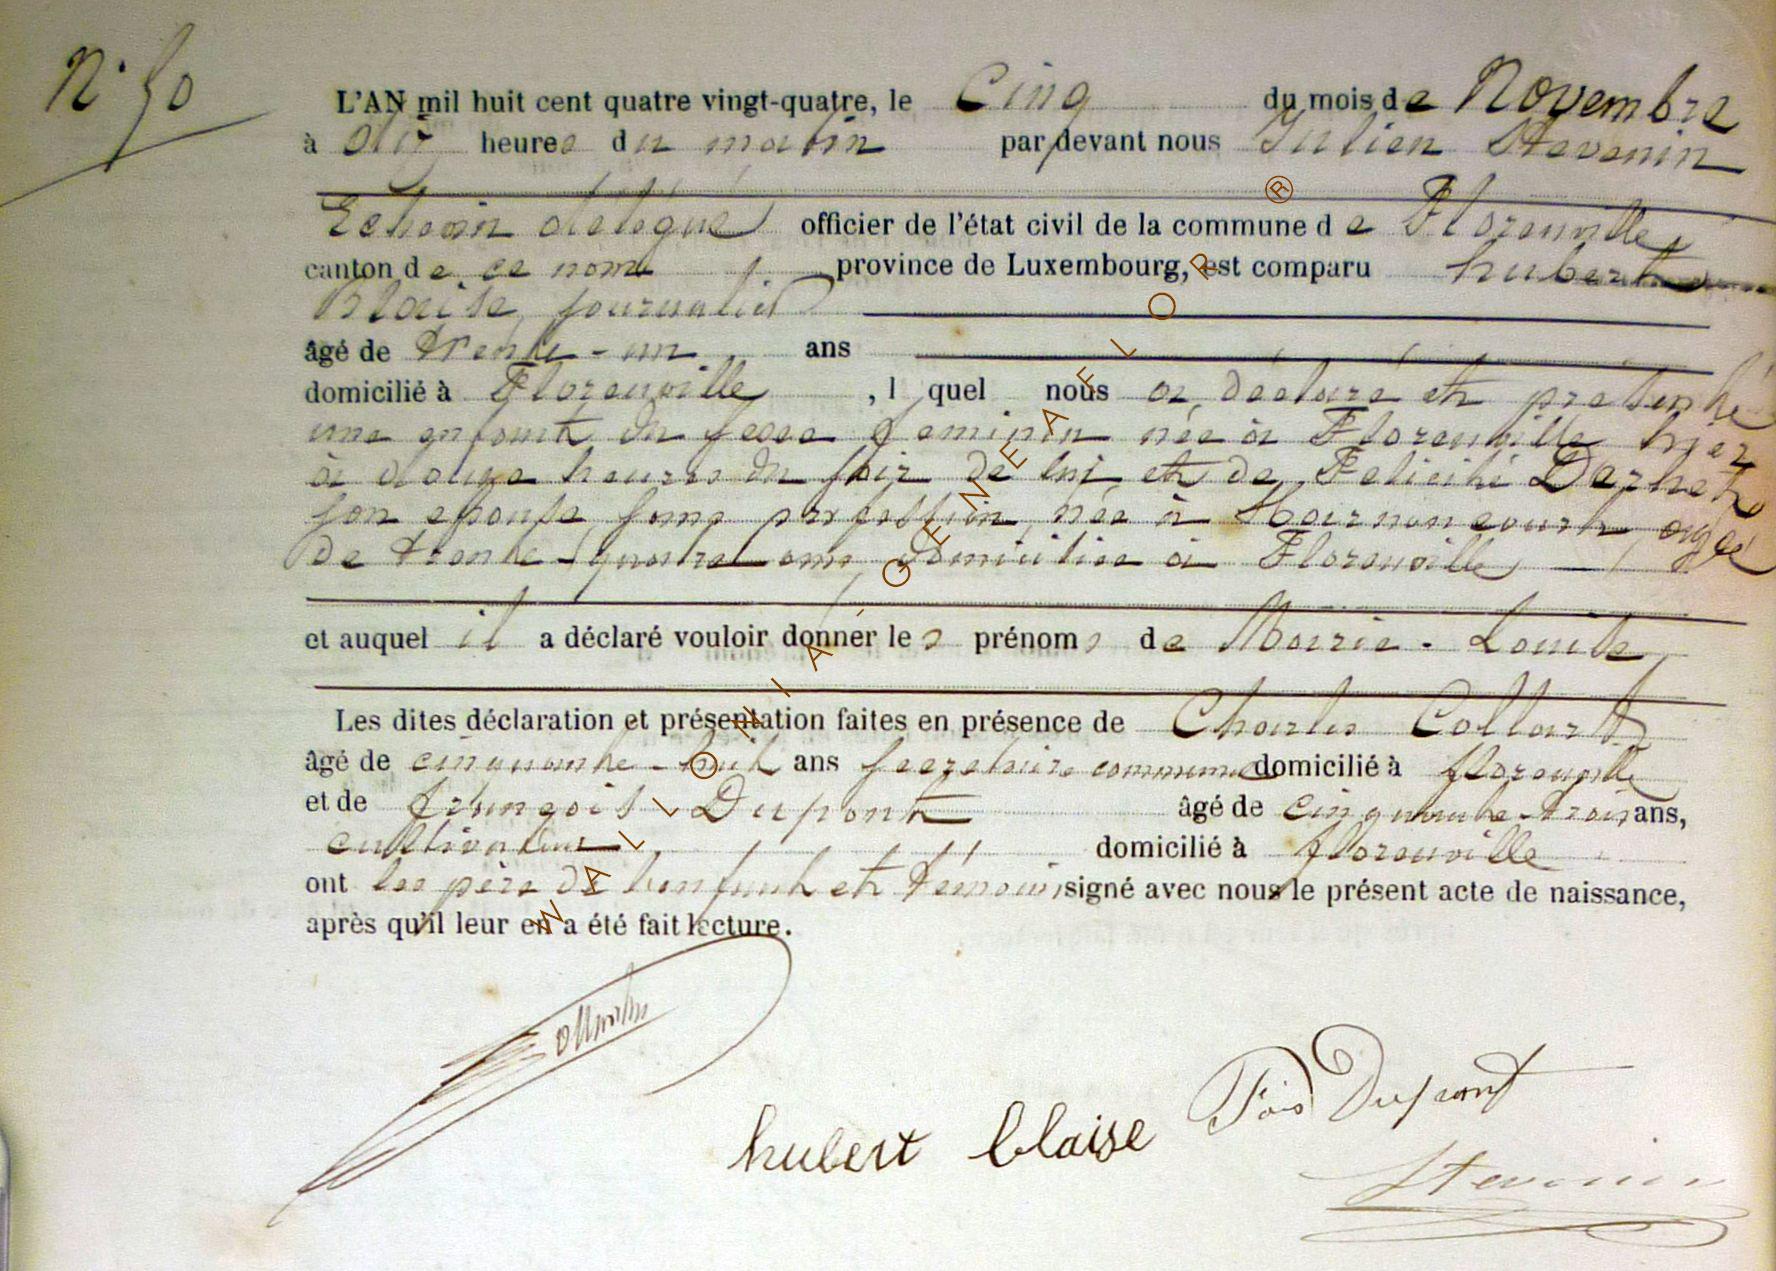 N° 50
L'AN mil huit cent quatre vingt-quatre, le Cinq du mois de Novembre
à dix heures du matin par devant nous Julien Stevenin
Echevin délégué officier de l'état civil de la commune de Florenville,
canton de ce nom, province de Luxembourg, est comparu hubert
Blaise, journalier
âgé de trente-un ans
domicilié à Florenville, lequel nous a déclaré et présenté
une enfant du sexe feminin née à Florenville hier
à douze heures du soir de lui et de Felicité
son epouse sans profession, née à agée
de trente-quatre ans, domiciliée à Florenville
et auquel il a déclaré vouloir donner les prénoms de Marie-Louise
Les dites déclaration et présentation faites en présence de Charles Collart
âgé de cinquante-huit ans secrétaire communal domicilié à florenville
et de françois Dupont âgé de cinquante-trois ans,
cultivateur domicilié à florenville
ont les père de l'enfant et témoins signé avec nous le présent acte de naissance,
après qu'il leur en a été fait lecture.
hubert blaise Fois Dupont
Stevenin
WALLONIA - GENEAFLOR ®